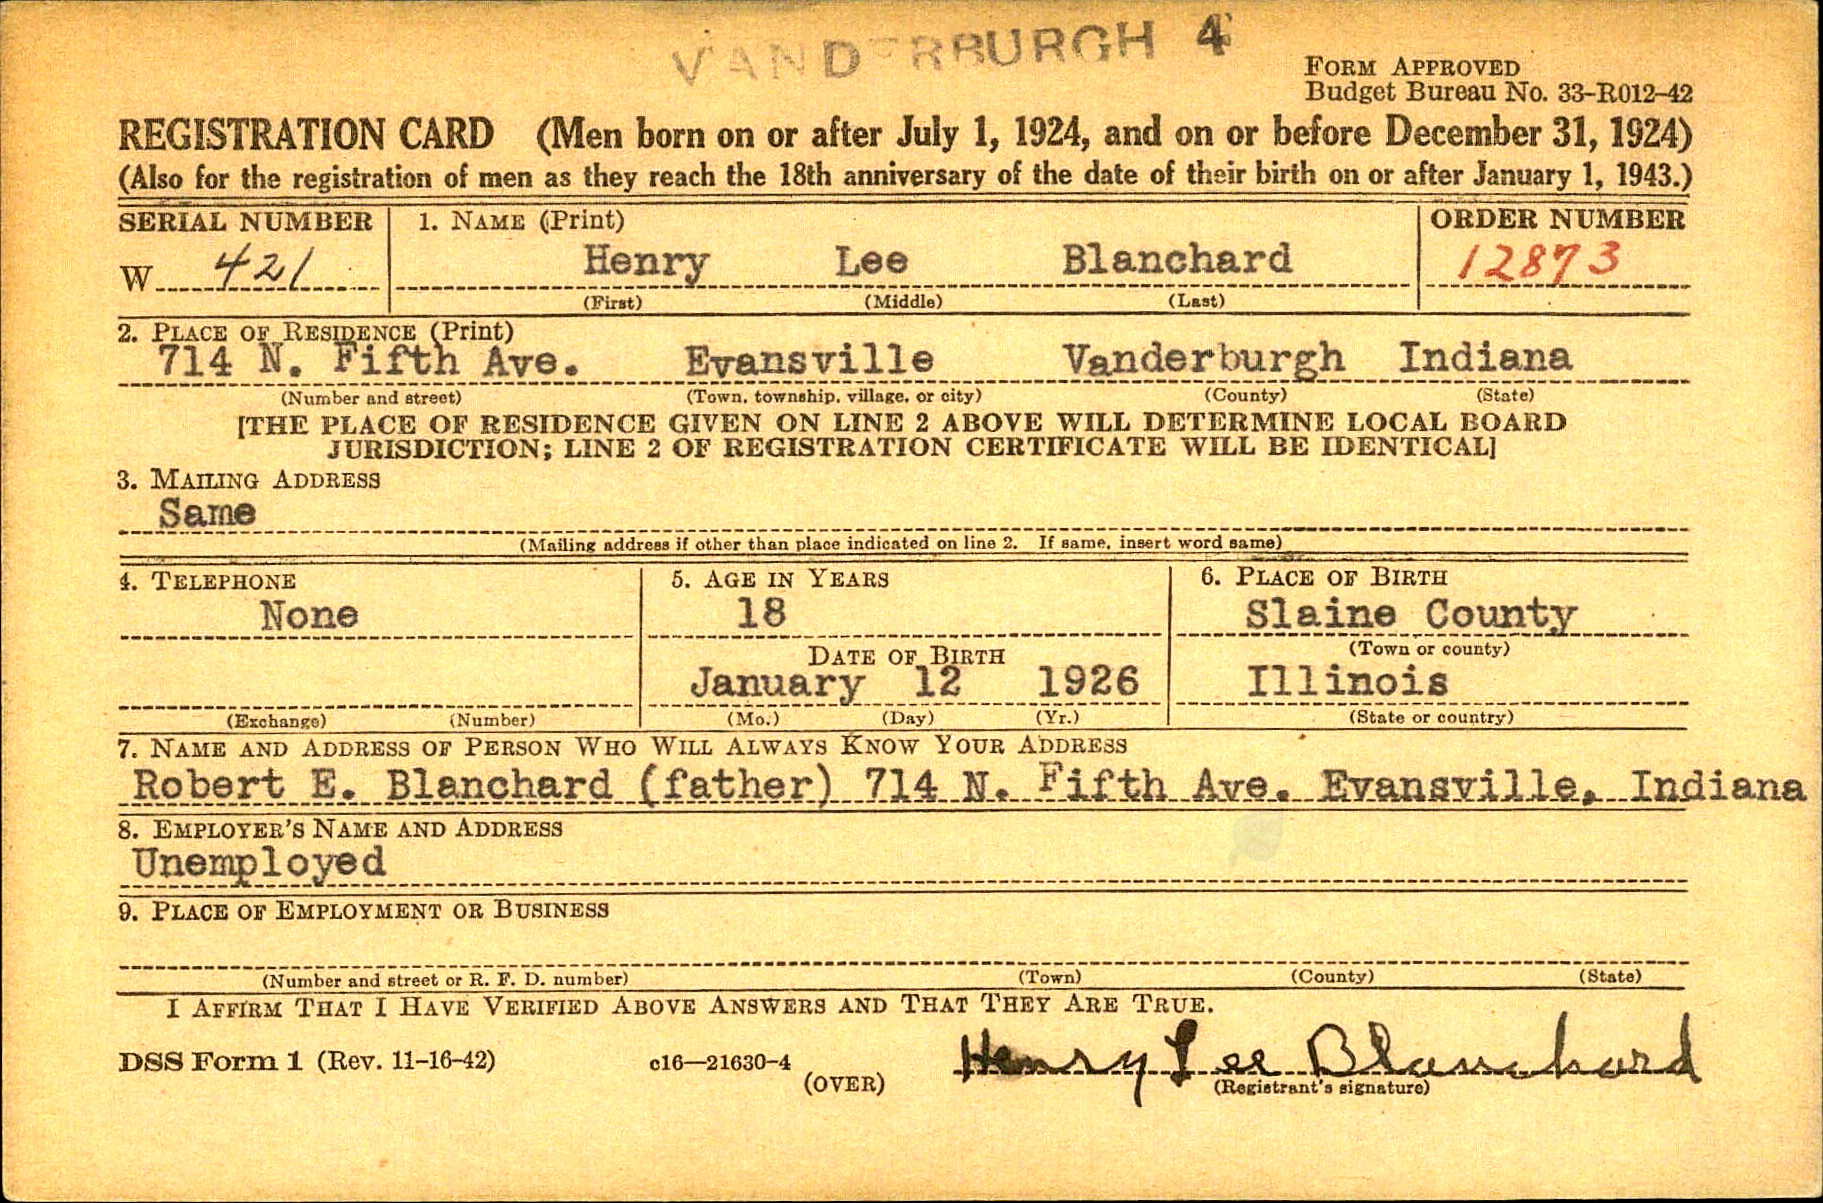 VANDERBURGH 4
FORM APPROVED
Budget Bureau No. 33-R012-42
REGISTRATION CARD (Men born on or after July 1, 1924, and on or before December 31, 1924)
(Also for the registration of men as they reach the 18th anniversary of the date of their birth on or after January 1, 1943.)
SERIAL NUMBER 1. NAME (Print) ORDER NUMBER
W 421 Henry Lee Blanchard 12873
(First) (Middle) (Last)
2. PLACE OF RESIDENCE (Print)
714 N. Fifth Ave. Evansville Vanderburgh Indiana
(Number and street) (Town, township, village, or city) (County) (State)
[THE PLACE OF RESIDENCE GIVEN ON LINE 2 ABOVE WILL DETERMINE LOCAL BOARD
JURISDICTION; LINE 2 OF REGISTRATION CERTIFICATE WILL BE IDENTICAL]
3. MAILING ADDRESS
Same
(Mailing address if other than place indicated on line 2. If same, insert word same)
4. TELEPHONE 5. AGE IN YEARS 6. PLACE OF BIRTH
None 18 Slaine County
(Town or county)
DATE OF BIRTH
January 12 1926 Illinois
(Exchange) (Number) (Mo.) (Day) (Yr.) (State or country)
7. NAME AND ADDRESS OF PERSON WHO WILL ALWAYS KNOW YOUR ADDRESS
Robert E. Blanchard (father) 714 N. Fifth Ave. Evansville, Indiana
8. EMPLOYER'S NAME AND ADDRESS
Unemployed
9. PLACE OF EMPLOYMENT OR BUSINESS
(Number and street or R. F. D. number) (Town) (County) (State)
I AFFIRM THAT I HAVE VERIFIED ABOVE ANSWERS AND THAT THEY ARE TRUE.
DSS Form 1 (Rev. 11-16-42) c16—21630-4 Henry Lee Blanchard
(OVER) (Registrant's signature)